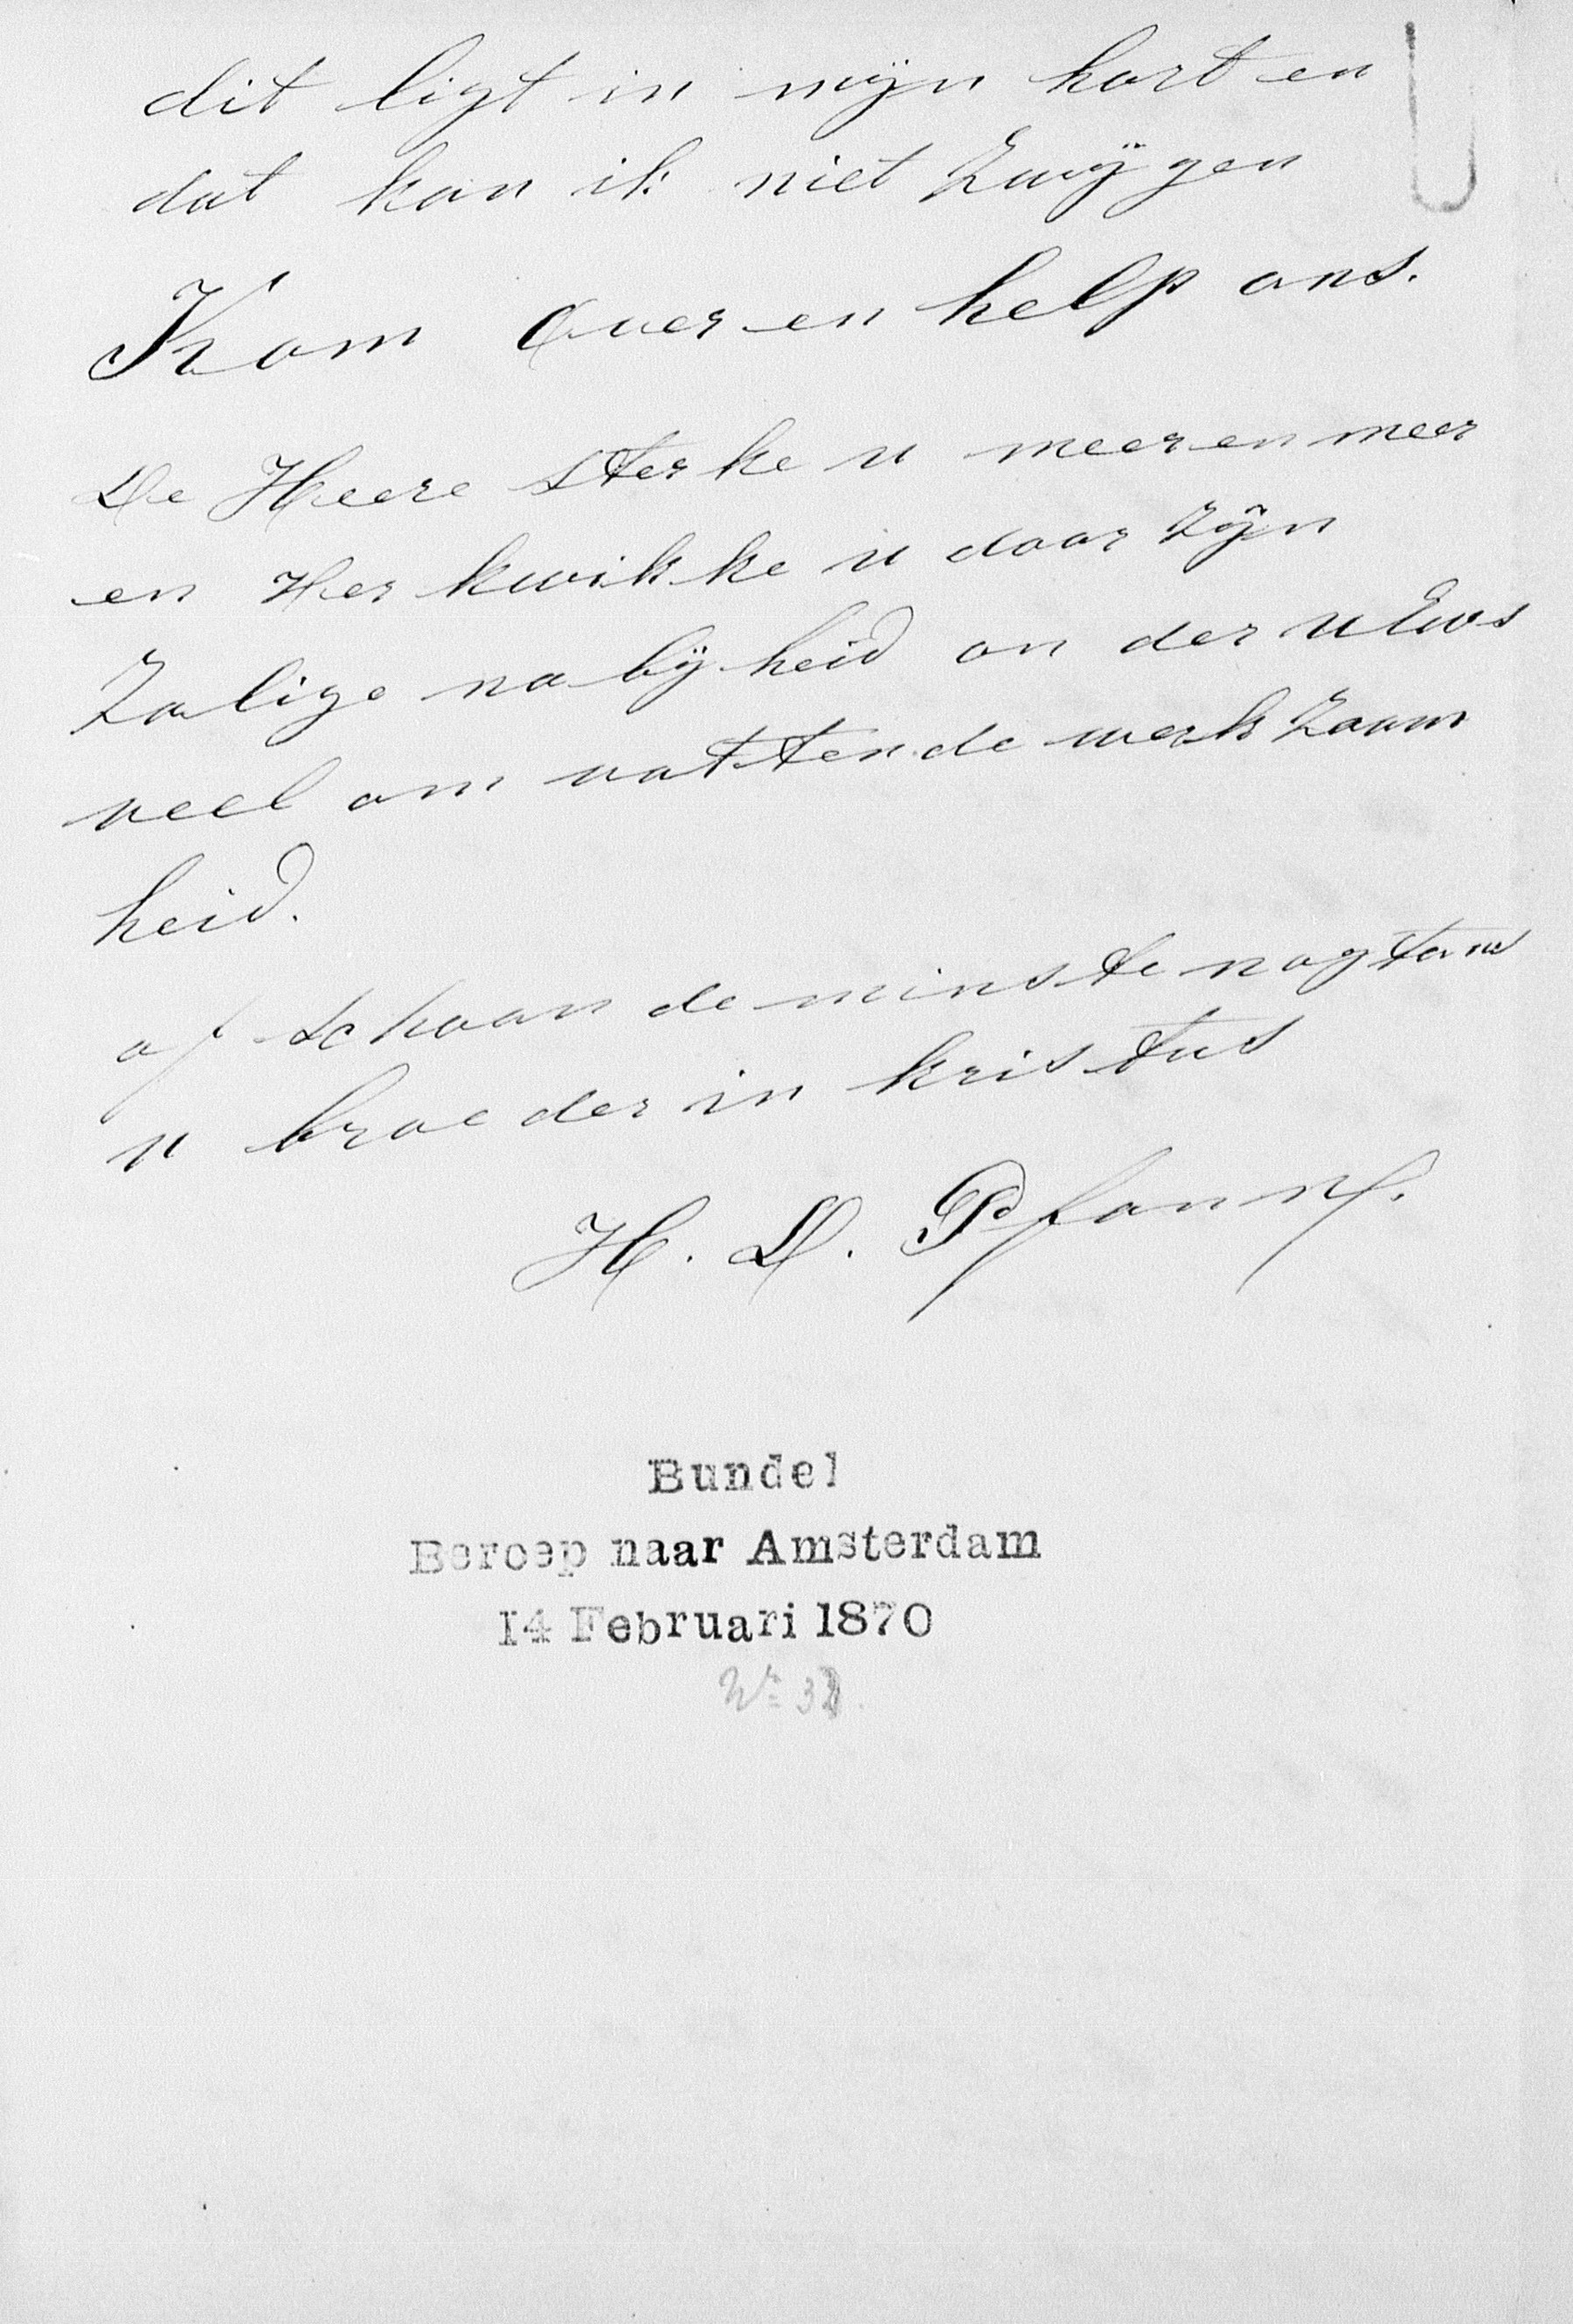 dit ligt in mijn hart en
dat kan ik niet zwijgen
Kom over en help ons.
De Heere sterke u meer en meer
en Her kwikke u door zijn
zalige nabijheid on der uEws
veel om vattende werkzaam
heid.
of schoon de minste nogtans
u broeder in kristus
H. D. Pfann
Bundel
Beroep naar Amsterdam
14 Februari 1870